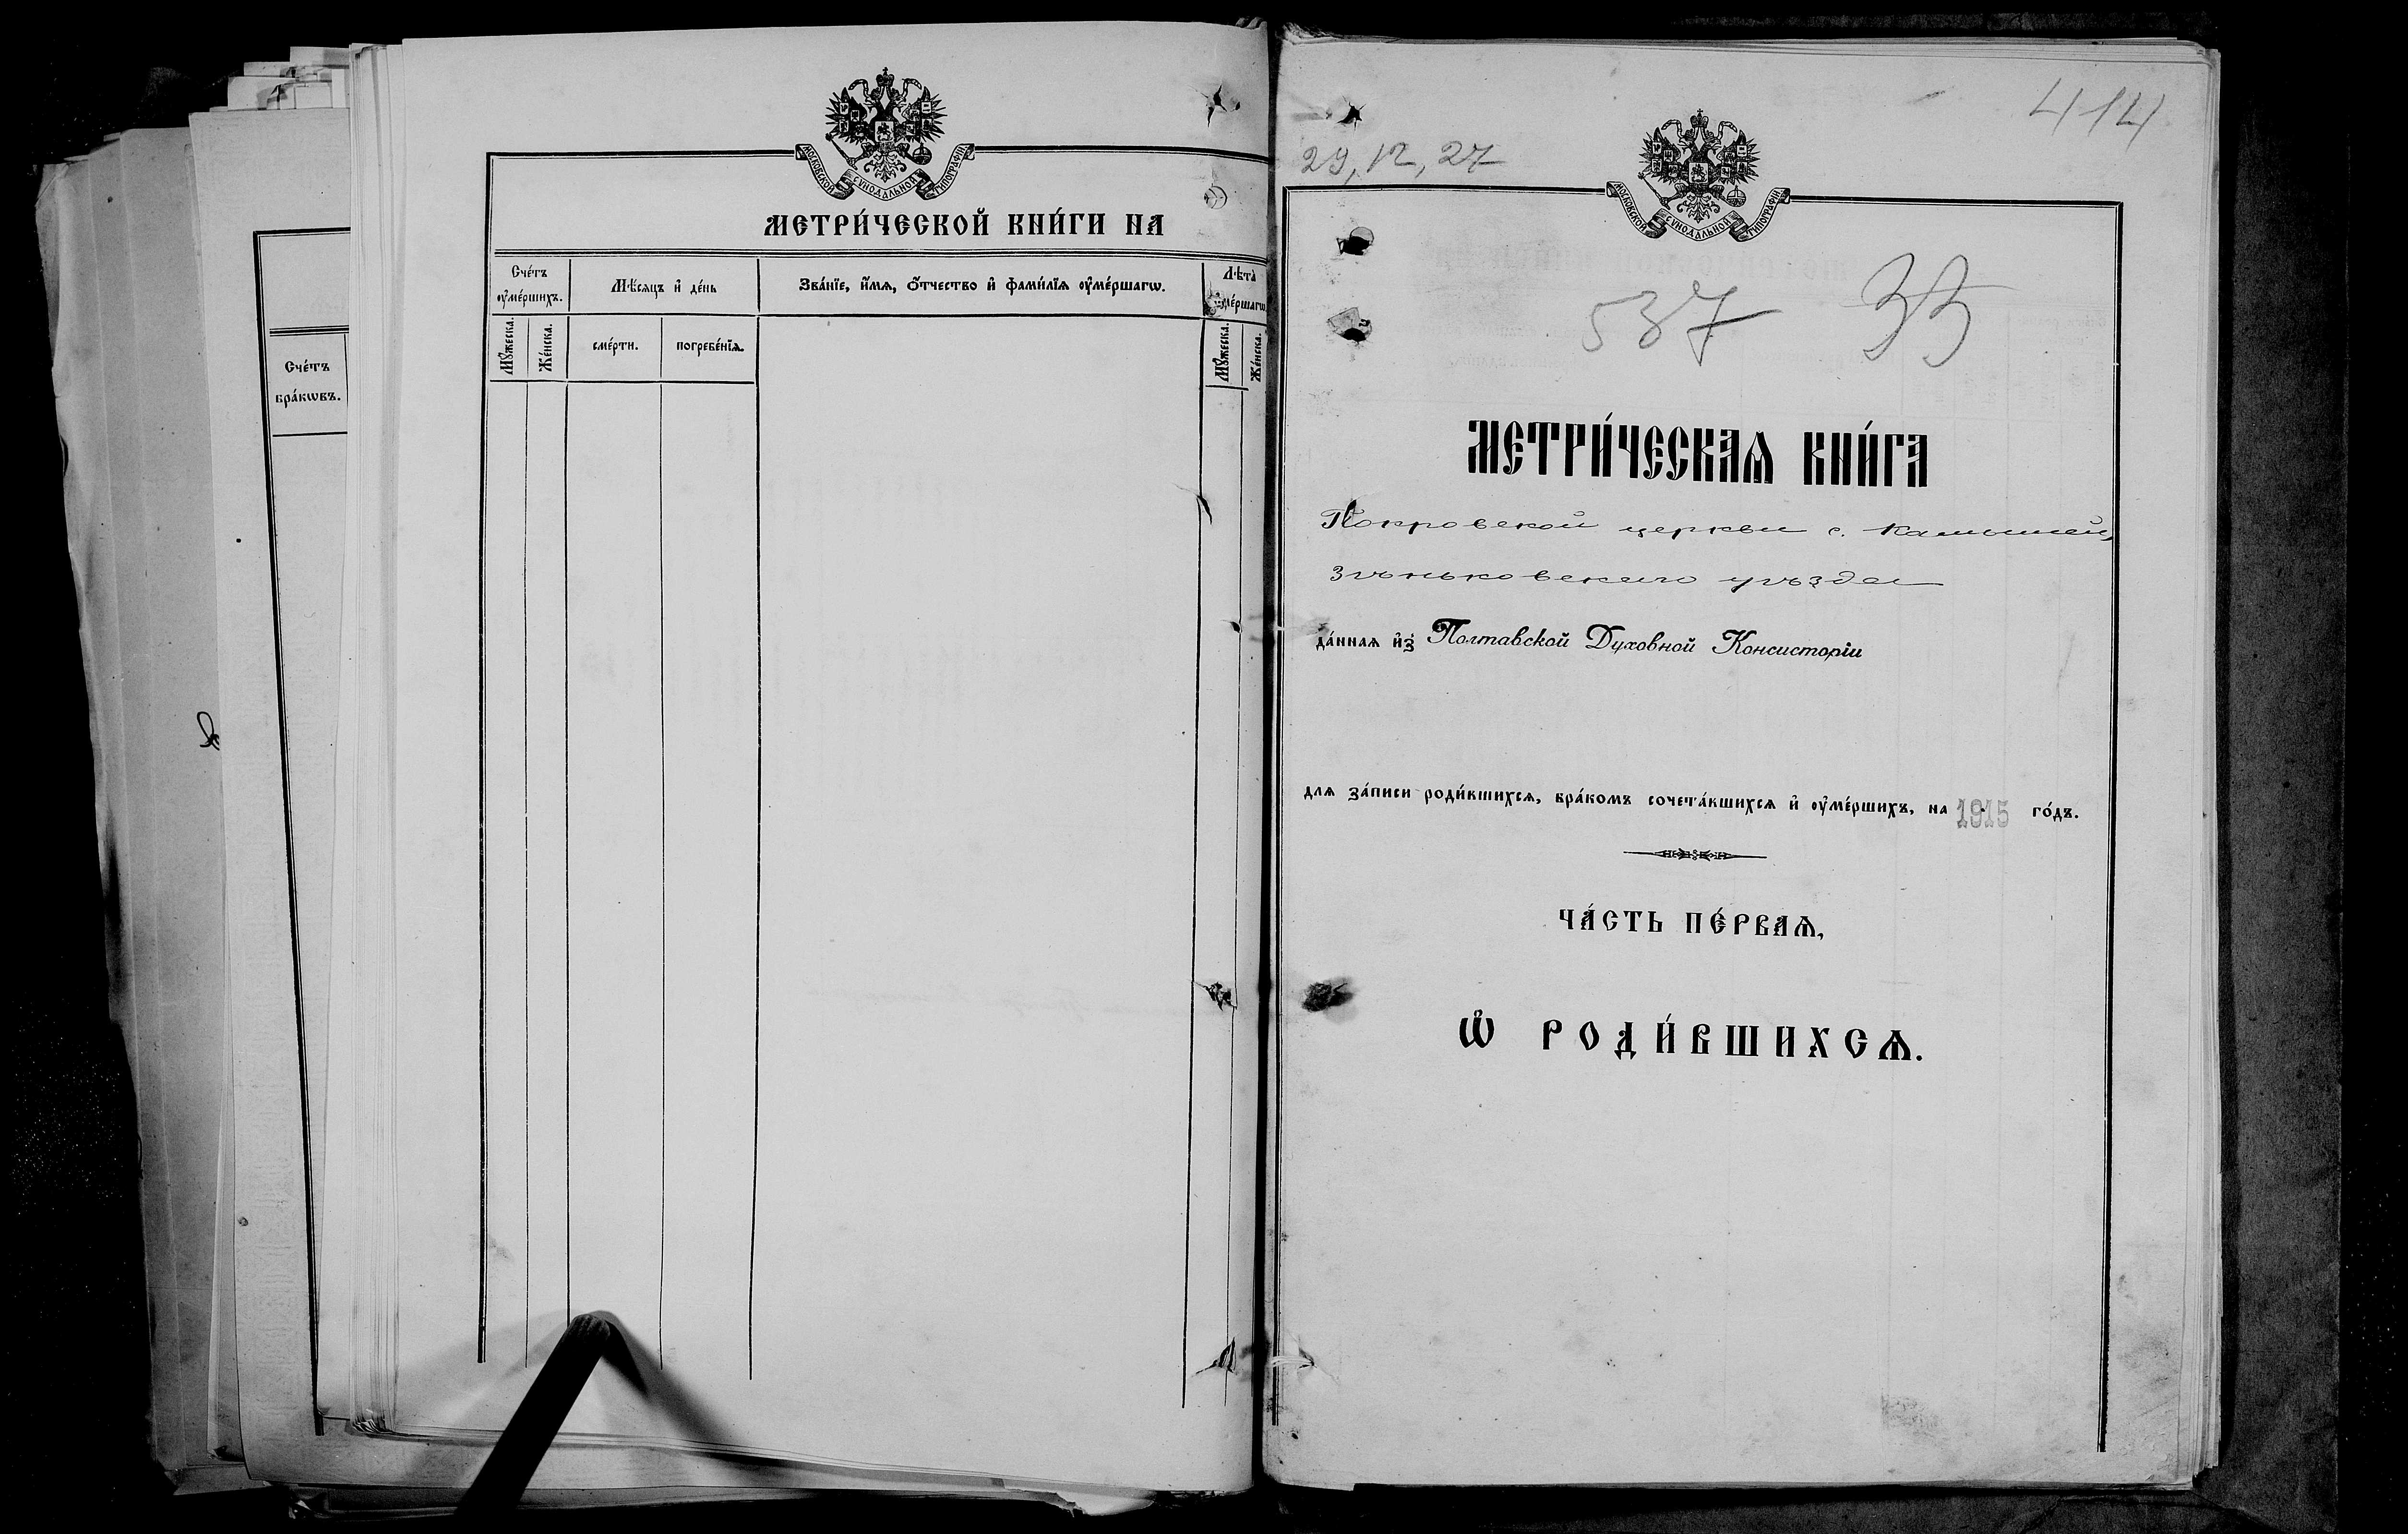 Сче́тъ
бра́кѡвъ.
МОСКОВСКОЙ СѴНОДАЛЬНОЙ ТИПОГРАФІИ
МЕТРИ́ЧЕСКОЙ КНИ́ГИ НА
Сче́тъ ᲂу҆ме́ршихъ.
Мѣ́сяцъ и҆ де́нь
Зва́нїе, и҆́мѧ, ѻ҆́тчество и҆ фами́лїѧ ᲂу҆ме́ршагѡ.
Лѣ́та ᲂу҆ме́ршагѡ
Мꙋ́жеска.
Же́нска.
сме́рти.
погребе́нїѧ.
Мꙋ́жеска.
Же́нска.
414
29, 12, 27
МОСКОВСКОЙ СѴНОДАЛЬНОЙ ТИПОГРАФІИ
537 33
МЕТРИ́ЧЕСКАѦ КНИ́ГА
Покровской церкви с. Камышей,
Зѣньковскаго уѣзда
да́ннаѧ и҆з̾ Полтавской Духовной Консисторіи
длѧ за́писи роди́вшихсѧ, бра́комъ сочета́вшихсѧ и҆ ᲂу҆ме́ршихъ, на 1915 го́дъ.
ЧА́СТЬ ПЕ́РВАѦ,
Ѡ҆ РОДИ́ВШИХСѦ.